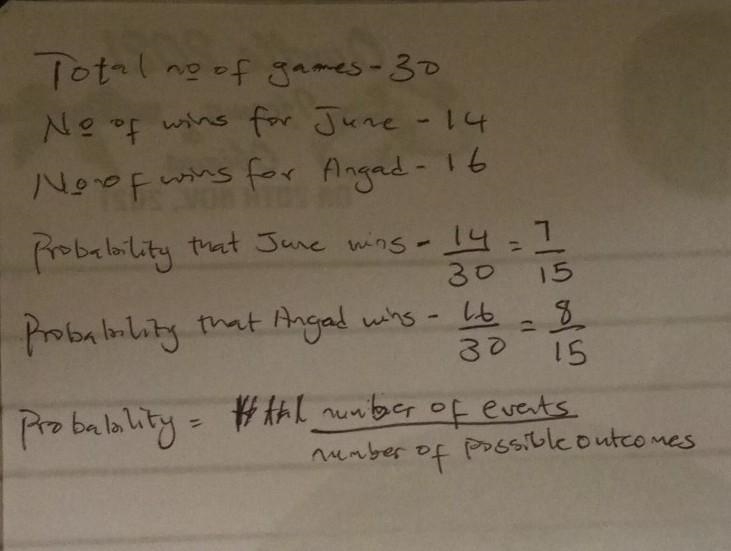 Total no of games - 30
No of wins for June - 14
No of wins for Angad - 16
Probability that June wins - 14/30 = 7/15
Probability that Angad wins - 16/30 = 8/15
Probability = number of events / number of possible outcomes